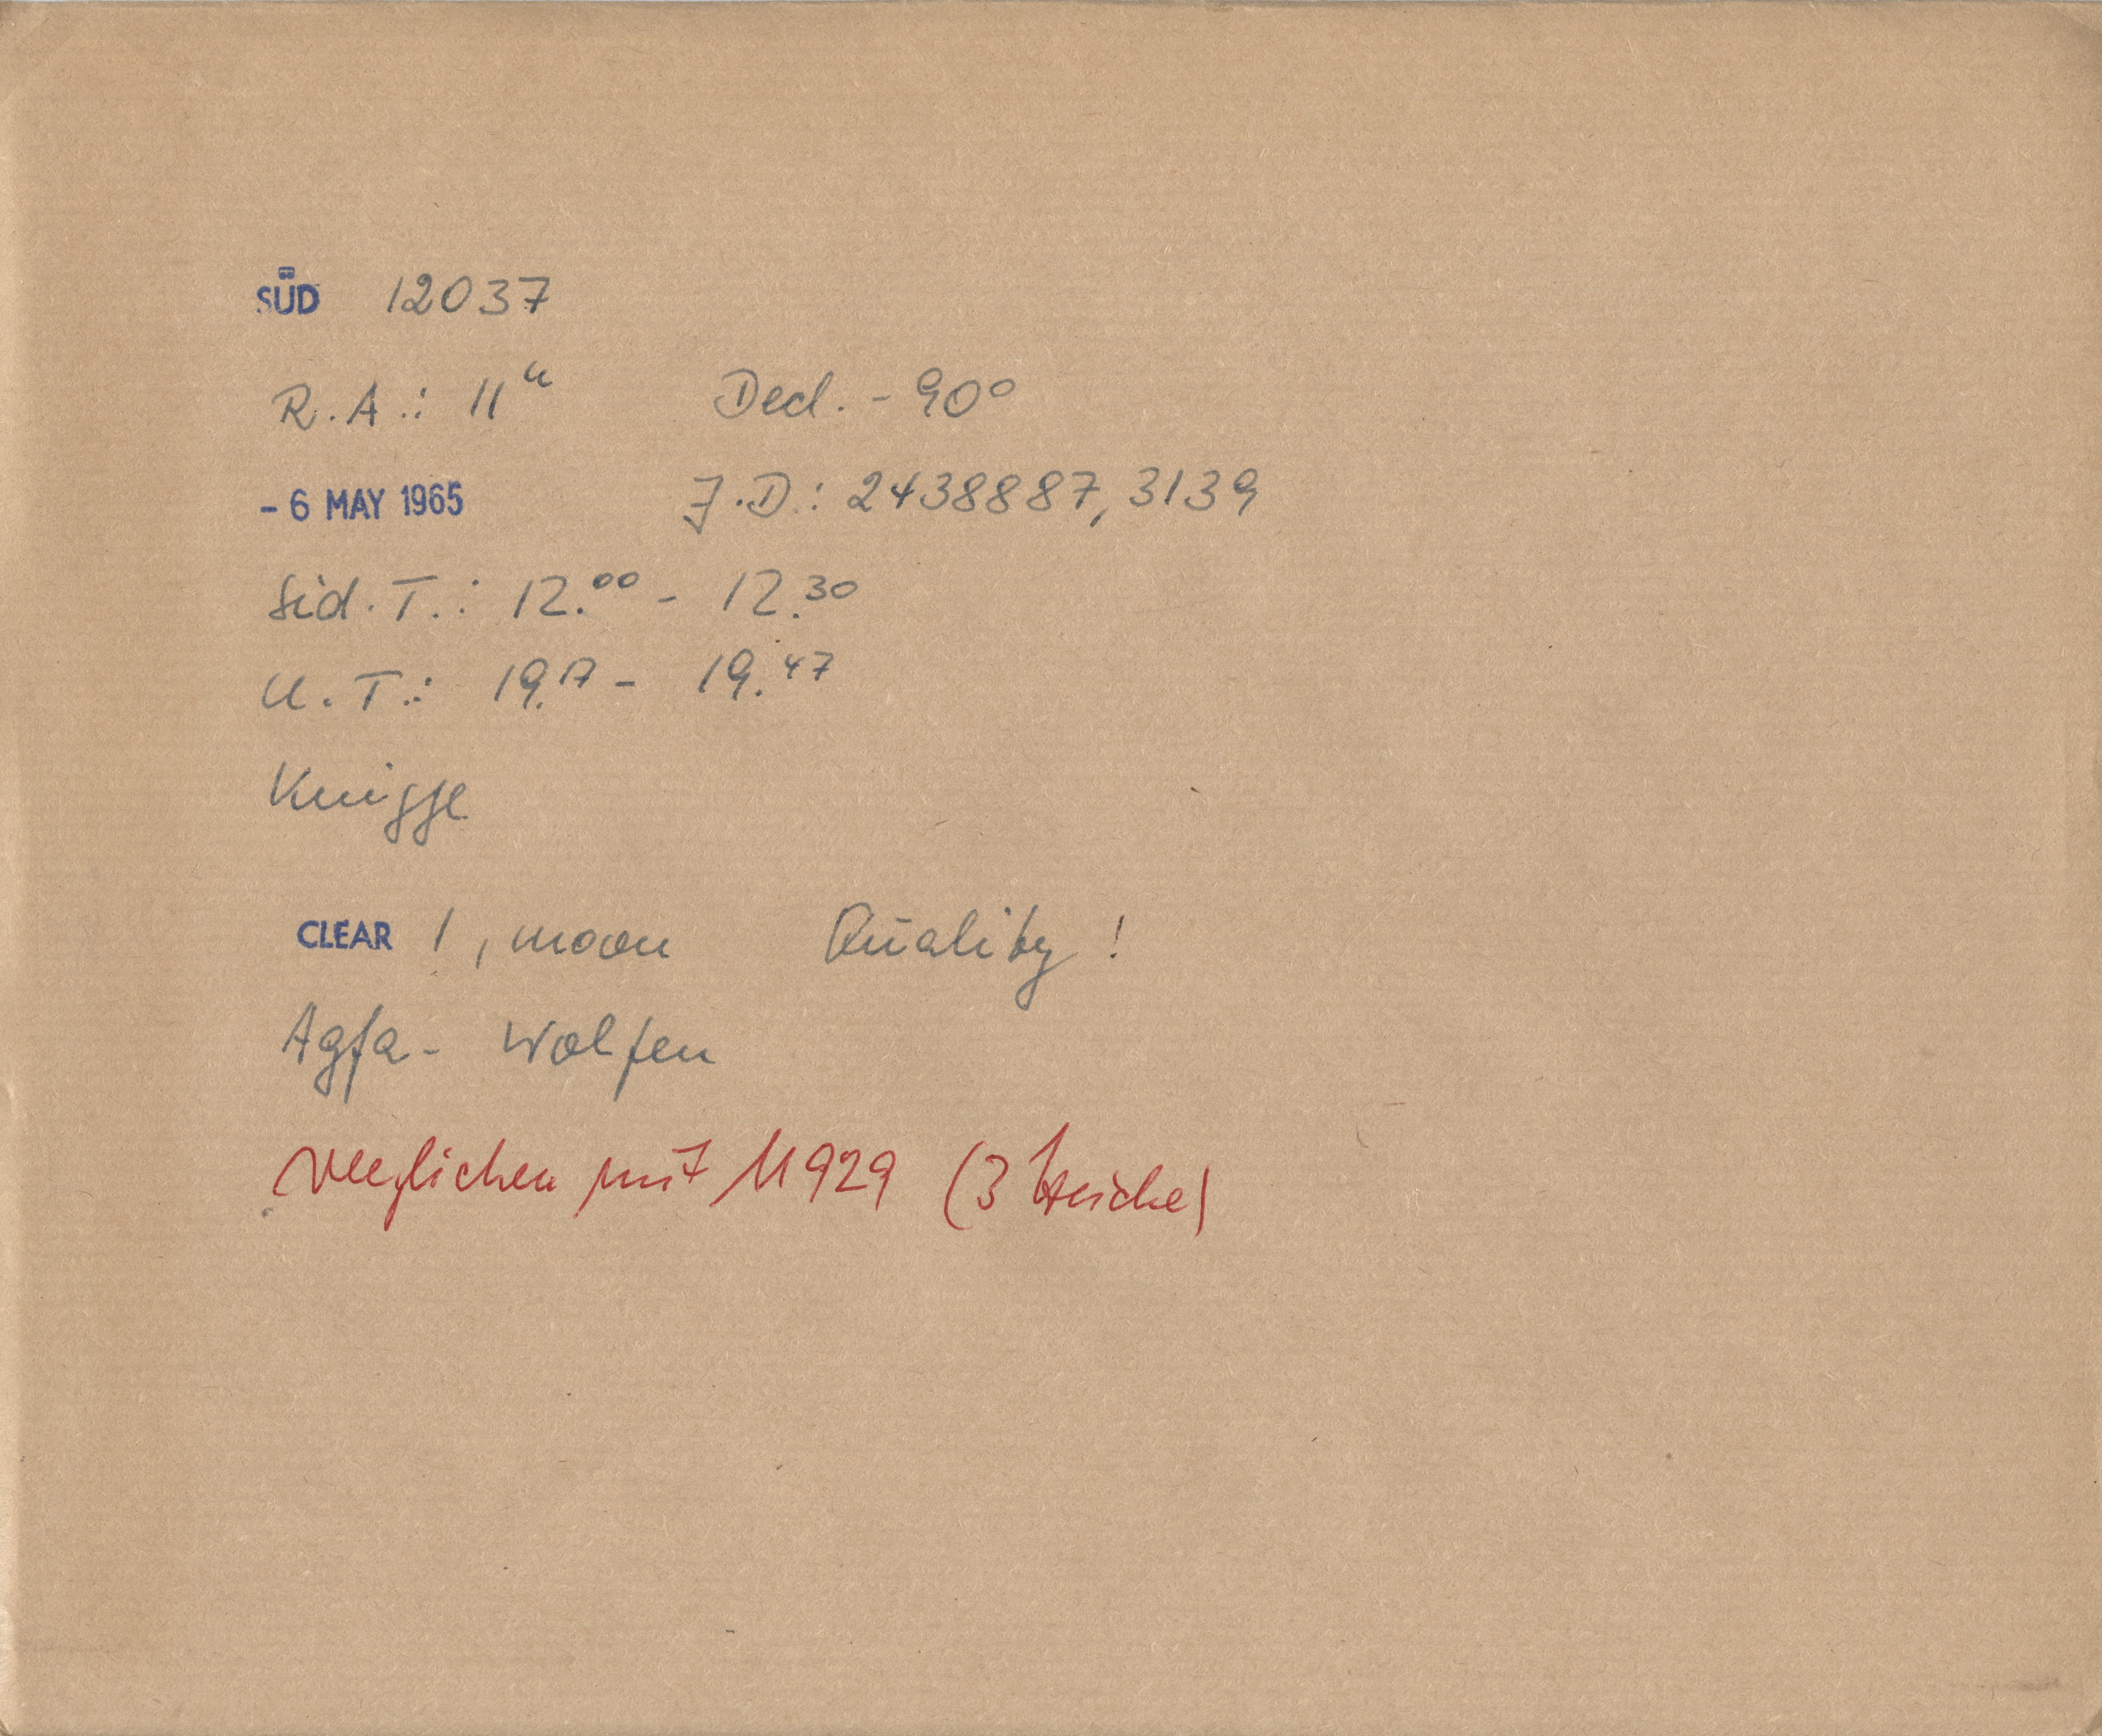 SÜD 12037
R.A.: 11ᵘ Decl. - 90°
- 6 MAY 1965 J.D.: 2438887,3139
Sid. T.: 12.⁰⁰ - 12.³⁰
U.T.: 19.¹⁷ - 19.⁴⁷
Knigge
CLEAR 1, moon Quality!
Agfa - Wolfen
verglichen mit 11929